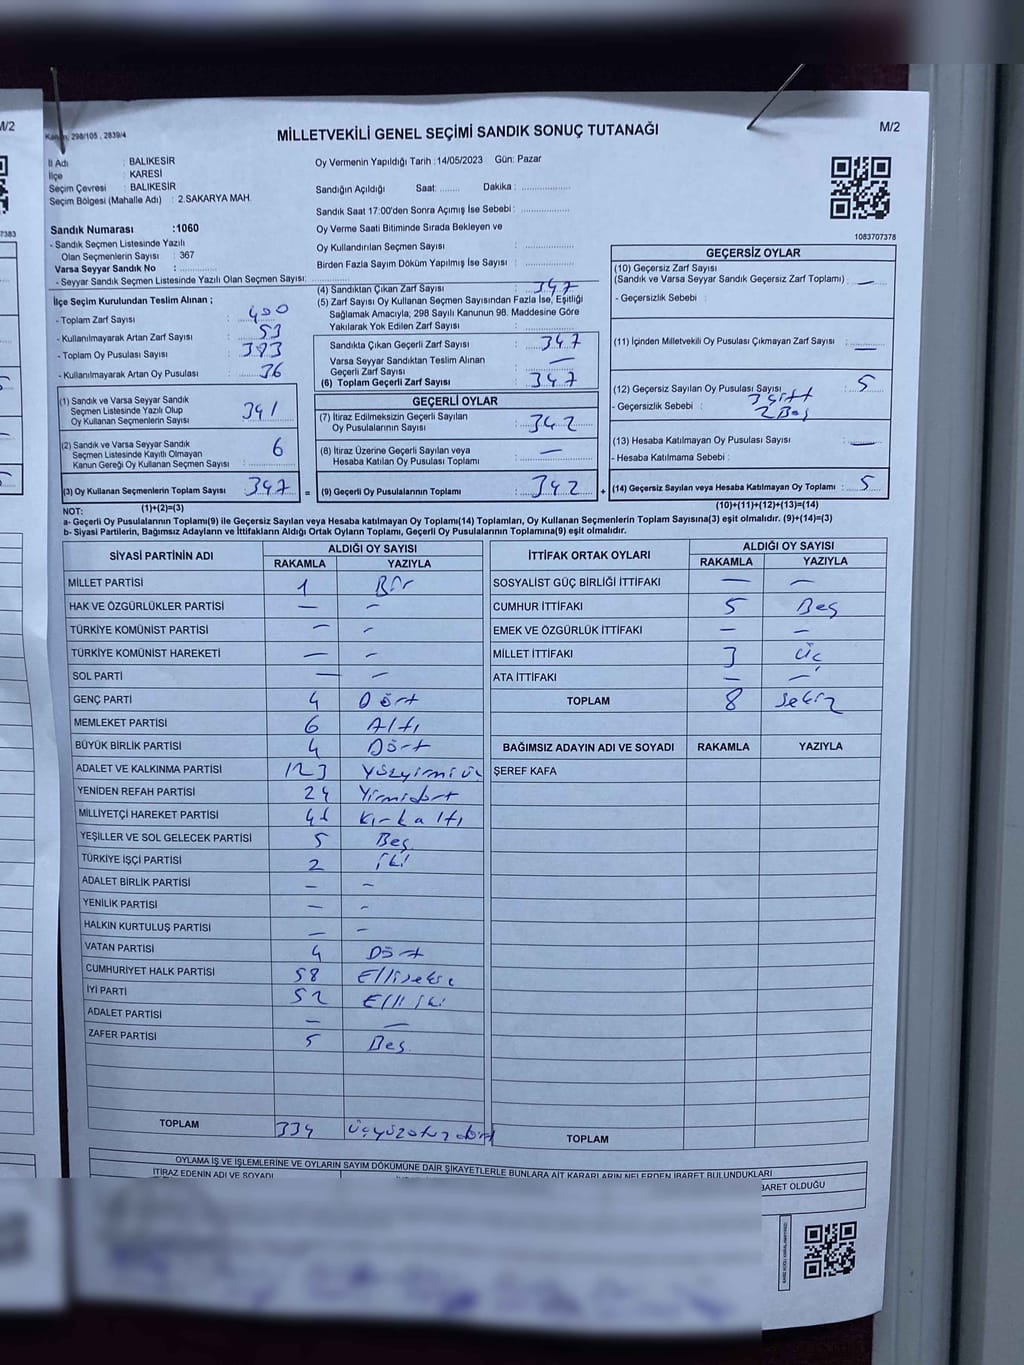 M/2
Kanun, 298/105 , 2839/4
MİLLETVEKİLİ GENEL SEÇİMİ SANDIK SONUÇ TUTANAĞI
M/2
İl Adı : BALIKESİR
İlçe : KARESİ
Seçim Çevresi : BALIKESİR
Seçim Bölgesi (Mahalle Adı) : 2.SAKARYA MAH
Sandık Numarası :1060
- Sandık Seçmen Listesinde Yazılı
Olan Seçmenlerin Sayısı : 367
Varsa Seyyar Sandık No : ............
- Seyyar Sandık Seçmen Listesinde Yazılı Olan Seçmen Sayısı:
Oy Vermenin Yapıldığı Tarih :14/05/2023 Gün: Pazar
Sandığın Açıldığı Saat: ........ Dakika : ..................
Sandık Saat 17:00'den Sonra Açımış İse Sebebi : ..................
Oy Verme Saati Bitiminde Sırada Bekleyen ve
Oy Kullandırılan Seçmen Sayısı : ..................
Birden Fazla Sayım Döküm Yapılmış İse Sayısı : ..................
1083707378
7383
İlçe Seçim Kurulundan Teslim Alınan ;
- Toplam Zarf Sayısı : 400
- Kullanılmayarak Artan Zarf Sayısı : 53
- Toplam Oy Pusulası Sayısı : 383
- Kullanılmayarak Artan Oy Pusulası : 36
(1) Sandık ve Varsa Seyyar Sandık
Seçmen Listesinde Yazılı Olup
Oy Kullanan Seçmenlerin Sayısı 341
(2) Sandık ve Varsa Seyyar Sandık
Seçmen Listesinde Kayıtlı Olmayan
Kanun Gereği Oy Kullanan Seçmen Sayısı : 6
(3) Oy Kullanan Seçmenlerin Toplam Sayısı 347 =
(1)+(2)=(3)
(4) Sandıktan Çıkan Zarf Sayısı : 347
(5) Zarf Sayısı Oy Kullanan Seçmen Sayısından Fazla İse, Eşitliği
Sağlamak Amacıyla, 298 Sayılı Kanunun 98. Maddesine Göre
Yakılarak Yok Edilen Zarf Sayısı : ..................
Sandıkta Çıkan Geçerli Zarf Sayısı : 347
Varsa Seyyar Sandıktan Teslim Alınan
Geçerli Zarf Sayısı : —
(6) Toplam Geçerli Zarf Sayısı : 347
GEÇERLİ OYLAR
(7) İtiraz Edilmeksizin Geçerli Sayılan
Oy Pusulalarının Sayısı : 342
(8) İtiraz Üzerine Geçerli Sayılan veya
Hesaba Katılan Oy Pusulası Toplamı : —
(9) Geçerli Oy Pusulalarının Toplamı : 342 +
GEÇERSİZ OYLAR
(10) Geçersiz Zarf Sayısı
(Sandık ve Varsa Seyyar Sandık Geçersiz Zarf Toplamı) : —
- Geçersizlik Sebebi :
(11) İçinden Milletvekili Oy Pusulası Çıkmayan Zarf Sayısı : —
(12) Geçersiz Sayılan Oy Pusulası Sayısı : 5
- Geçersizlik Sebebi : 3 çift
2 Boş
(13) Hesaba Katılmayan Oy Pusulası Sayısı : —
- Hesaba Katılmama Sebebi :
(14) Geçersiz Sayılan veya Hesaba Katılmayan Oy Toplamı : 5
(10)+(11)+(12)+(13)=(14)
NOT:
a- Geçerli Oy Pusulalarının Toplamı(9) ile Geçersiz Sayılan veya Hesaba katılmayan Oy Toplamı(14) Toplamları, Oy Kullanan Seçmenlerin Toplam Sayısına(3) eşit olmalıdır. (9)+(14)=(3)
b- Siyasi Partilerin, Bağımsız Adayların ve İttifakların Aldığı Ortak Oyların Toplamı, Geçerli Oy Pusulalarının Toplamına(9) eşit olmalıdır.
SİYASİ PARTİNİN ADI ALDIĞI OY SAYISI
RAKAMLA YAZIYLA
MİLLET PARTİSİ 1 Bir
HAK VE ÖZGÜRLÜKLER PARTİSİ — —
TÜRKİYE KOMÜNİST PARTİSİ — —
TÜRKİYE KOMÜNİST HAREKETİ — —
SOL PARTİ — —
GENÇ PARTİ 4 Dört
MEMLEKET PARTİSİ 6 Altı
BÜYÜK BİRLİK PARTİSİ 4 Dört
ADALET VE KALKINMA PARTİSİ 123 Yüzyirmi üç
YENİDEN REFAH PARTİSİ 24 Yirmidört
MİLLİYETÇİ HAREKET PARTİSİ 46 Kırkaltı
YEŞİLLER VE SOL GELECEK PARTİSİ 5 Beş
TÜRKİYE İŞÇİ PARTİSİ 2 iki
ADALET BİRLİK PARTİSİ — —
YENİLİK PARTİSİ — —
HALKIN KURTULUŞ PARTİSİ — —
VATAN PARTİSİ 4 Dört
CUMHURİYET HALK PARTİSİ 58 Ellisekiz
İYİ PARTİ 52 Elli iki
ADALET PARTİSİ — —
ZAFER PARTİSİ 5 Beş
TOPLAM 334 üçyüzotuzdört
İTTİFAK ORTAK OYLARI ALDIĞI OY SAYISI
RAKAMLA YAZIYLA
SOSYALİST GÜÇ BİRLİĞİ İTTİFAKI — —
CUMHUR İTTİFAKI 5 Beş
EMEK VE ÖZGÜRLÜK İTTİFAKI — —
MİLLET İTTİFAKI 3 üç
ATA İTTİFAKI — —
TOPLAM 8 Sekiz
BAĞIMSIZ ADAYIN ADI VE SOYADI RAKAMLA YAZIYLA
ŞEREF KAFA
TOPLAM
OYLAMA İŞ VE İŞLEMLERİNE VE OYLARIN SAYIM DÖKÜMÜNE DAİR ŞİKAYETLERLE BUNLARA AİT KARARLARIN NELERDEN İBARET BULUNDUKLARI
İTİRAZ EDENİN ADI VE SOYADI
BARET OLDUĞU